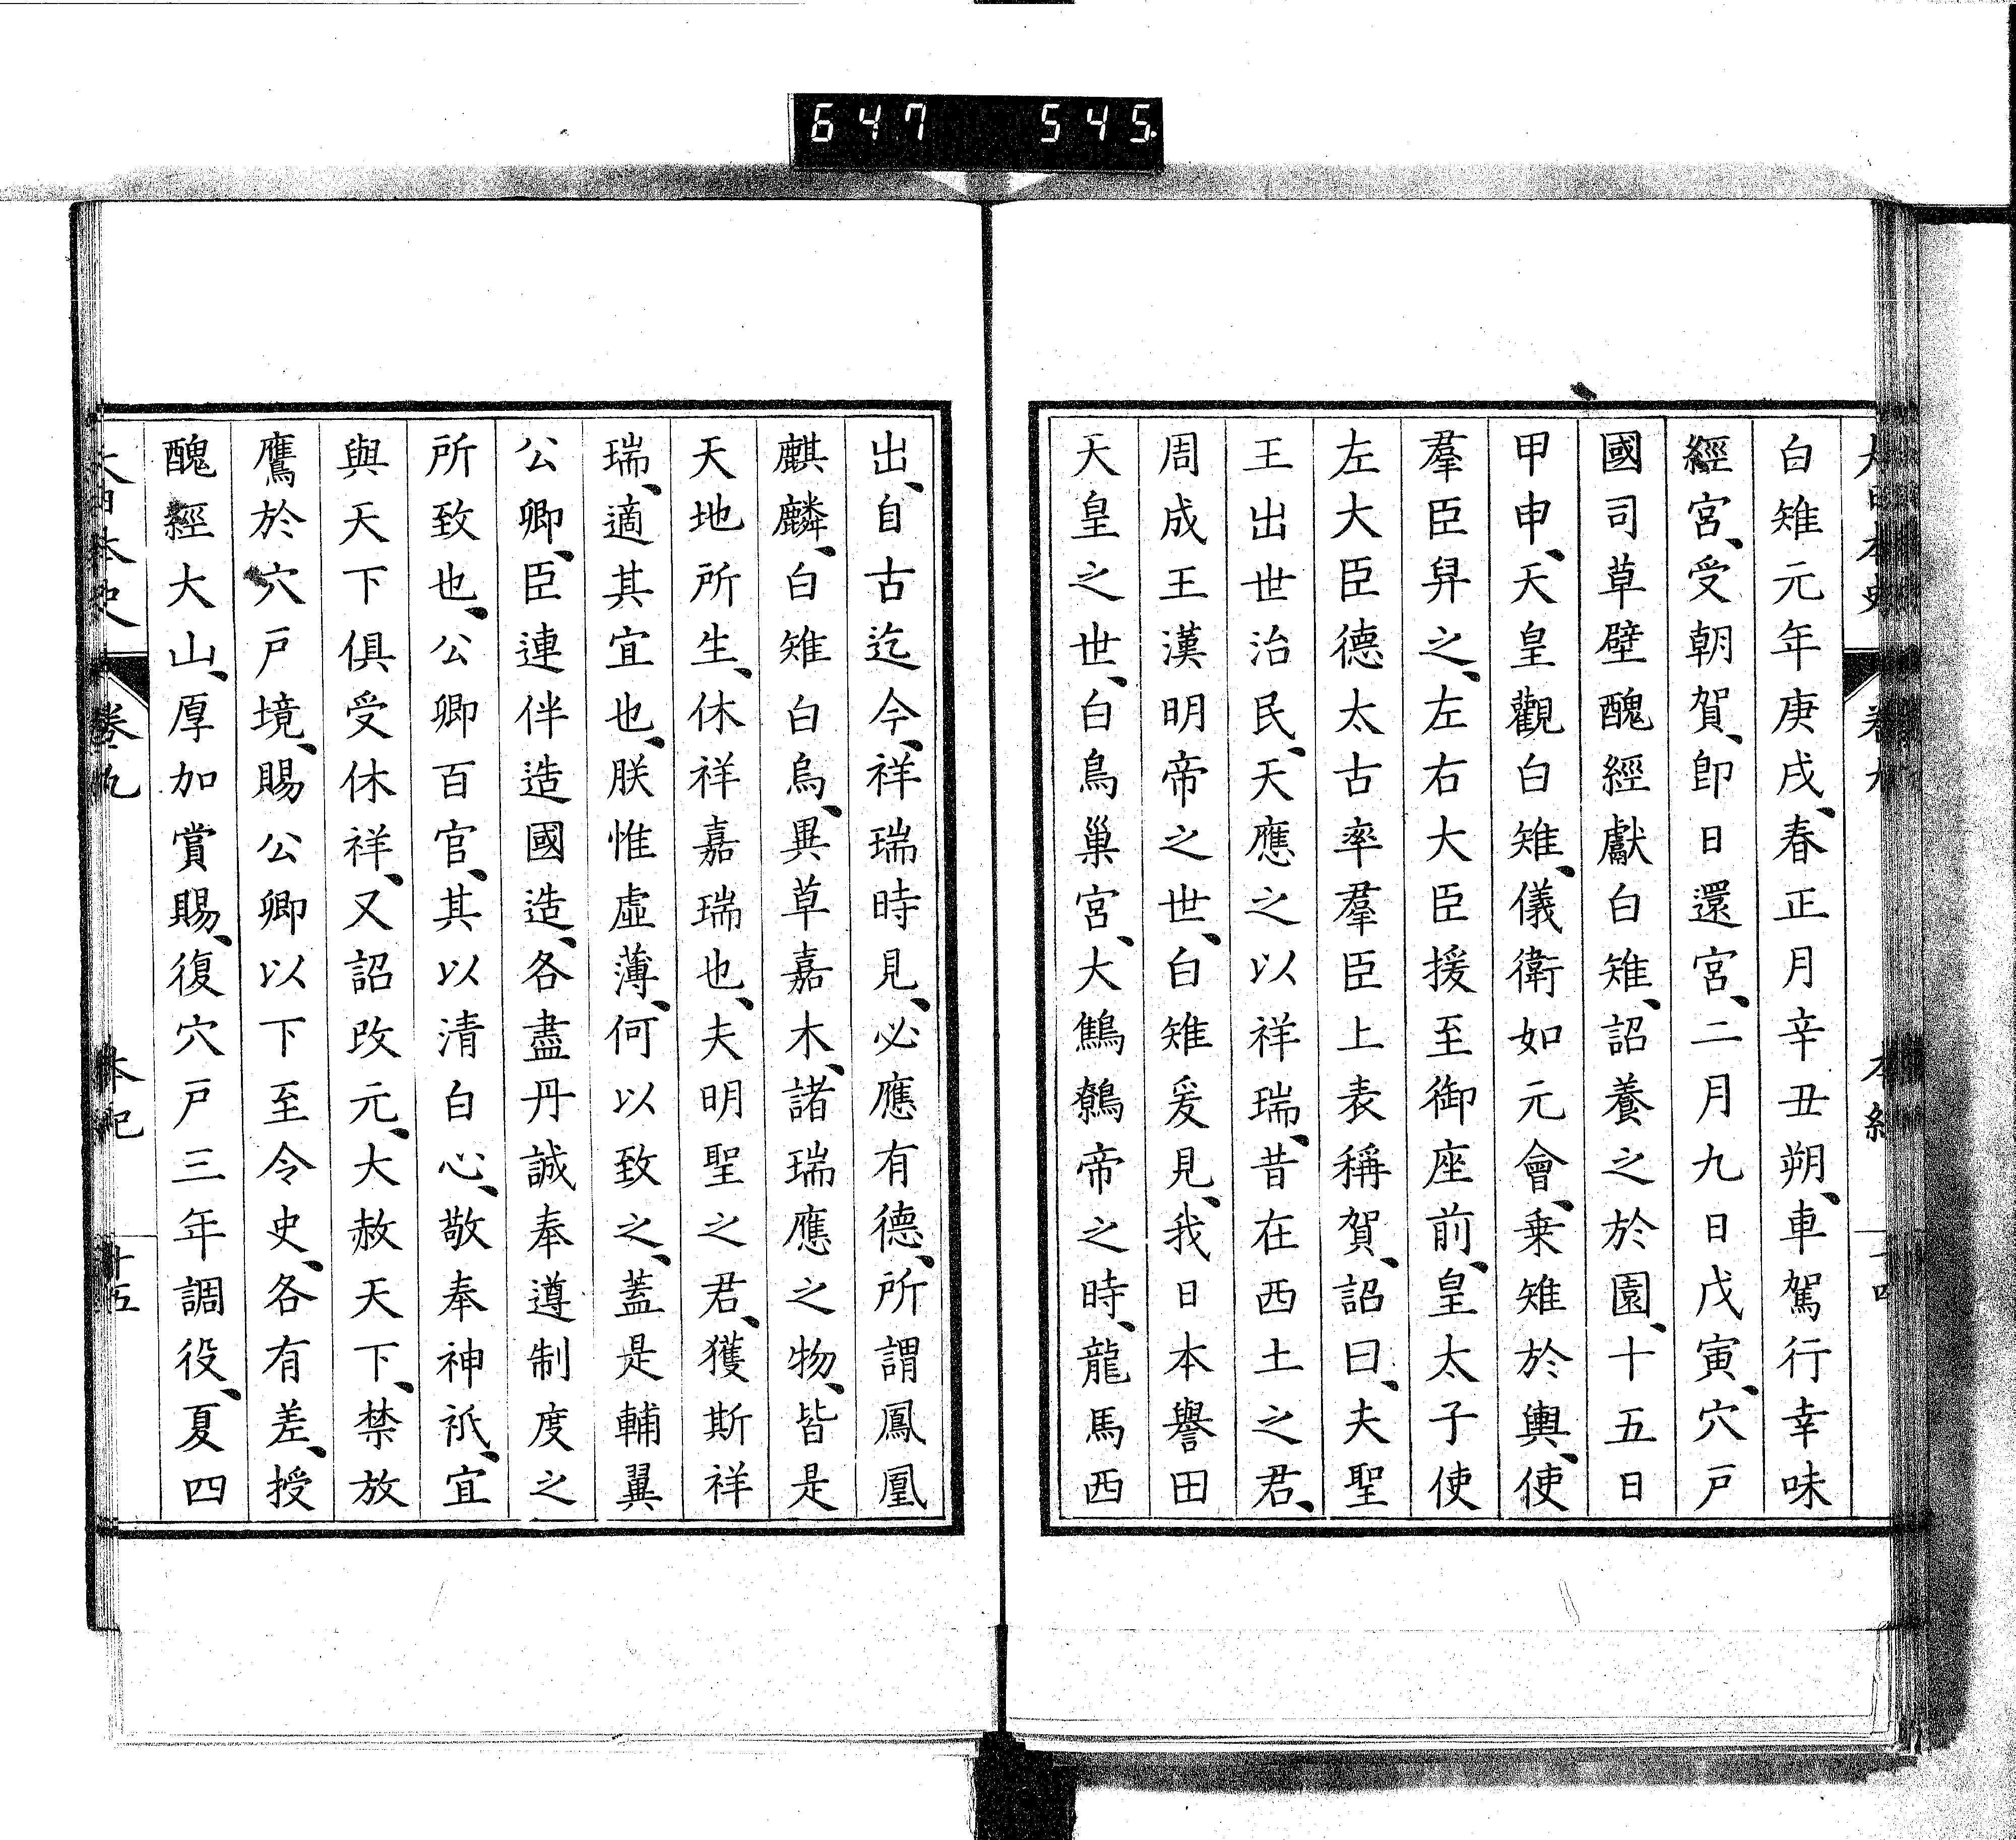 647 545
大日本史 卷九 本紀 十四
白雉元年庚戌、春正月辛丑朔、車駕行幸味
經宮、受朝賀、卽日還宮、二月九日戊寅、穴戶
國司草壁醜經獻白雉、詔養之於園、十五日
甲申、天皇觀白雉、儀衛如元會、乗雉於輿、使
羣臣舁之、左右大臣援至御座前、皇太子使
左大臣德太古率羣臣上表稱賀、詔曰、夫聖
王出世治民、天應之以祥瑞、昔在西土之君、
周成王漢明帝之世、白雉爰見、我日本譽田
天皇之世、白鳥巢宮、大鷦鷯帝之時、龍馬西
出、自古迄今、祥瑞時見、必應有德、所謂鳳凰
麒麟、白雉白烏、異草嘉木、諸瑞應之物、皆是
天地所生、休祥嘉瑞也、夫明聖之君、獲斯祥
瑞、適其宜也、朕惟虛薄、何以致之、蓋是輔翼
公卿、臣連伴造國造、各盡丹誠奉遵制度之
所致也、公卿百官、其以清白心、敬奉神祇、宜
與天下俱受休祥、又詔改元、大赦天下、禁放
鷹於穴戶境、賜公卿以下至令史、各有差、授
醜經大山、厚加賞賜、復穴戶三年調役、夏四
大日本史 卷九 本紀 十五